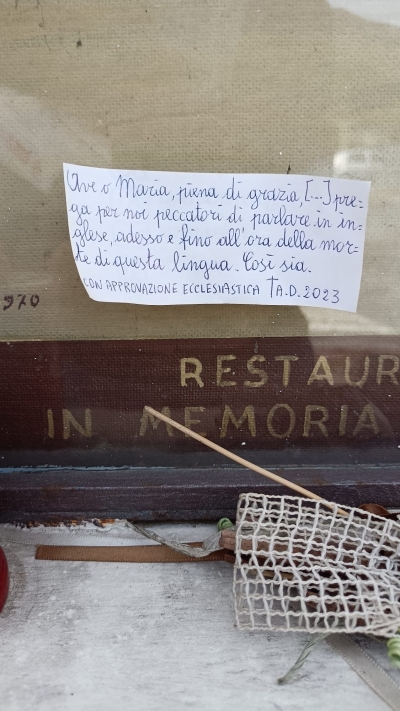 Ave o Maria, piena di grazia, [...] pre=
ga per noi peccatori di parlare in in=
glese, adesso e fino all'ora della mor=
te di questa lingua. Così sia.
CON APPROVAZIONE ECCLESIASTICA †A.D. 2023
970
RESTAUR
IN MEMORIA